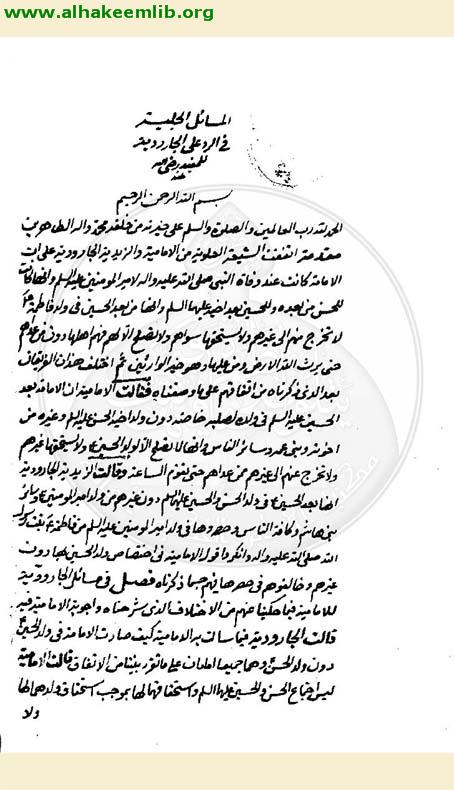 www.alhakeemlib.org
المسائل الجلية
في الرد على الجارودية
للمفيد رضي الله
عنه
بسم الله الرحمن الرحيم
الحمد لله رب العالمين والصلوة والسلم على خيرته من خلقه محمد واله الطاهرين
مقدمة اتفقت الشيعة العلوية من الامامية والزيدية الجارودية على ان
الامامة كانت عند وفاة النبي صلى الله عليه واله لامير المومنين عليه السلم وانها كانت
للحسن من بعده وللحسين بعد اخيه عليهما السلم وانها من بعد الحسين في ولد فاطمة ع
لا تخرج منهم الى غيرهم ولا يستحقها سواهم ولا تصلح الا لهم فهم اهلها دون من عداهم
حتى يرث الله الارض ومن عليها وهو خير الوارثين ثم اختلف هذان الفريقان
بعد الذي ذكرناه من اتفاقهم على ما وصفناه فقالت الامامية ان الامامة بعد
الحسين عليه السلم في ولده لصلبه خاصة دون ولد اخيه الحسن عليه السلم وغيره من
اخوته وبني عمه وسائر الناس وانها لا تصلح الا لولد الحسين ع ولا يستحقها غيرهم
ولا تخرج عنهم الى غيرهم ممن عداهم حتى تقوم الساعة وقالت الزيدية الجارودية
انها بعد الحسين ع في ولد الحسن والحسين عليهما السلم دون غيرهم من ولد امير المومنين ع وسائر
بني هاشم وكافة الناس وحصروها في ولد امير المومنين عليه السلم من فاطمة ع بنت رسول
الله صلى الله عليه واله وانكروا قول الامامية في اختصاص ولد الحسين بها دون
غيرهم وخالفوهم في حصرها فيهم حسبما ذكرناه فصل في مسائل الجارودية
للامامية فيما حكينا عنهم من الاختلاف الذي شرحناه واجوبة الامامية فيه
قالت الجارودية فيما سالت به الامامية كيف صارت الامامة في ولد الحسين
دون ولد الحسن وهما جميعا امامان على ما تقرر بيننا من الاتفاق قالت الامامية
ليس اجتماع الحسن والحسين عليهما السلم واستحقاقهما لها بموجب استحقاق ولدهما لها
ولا